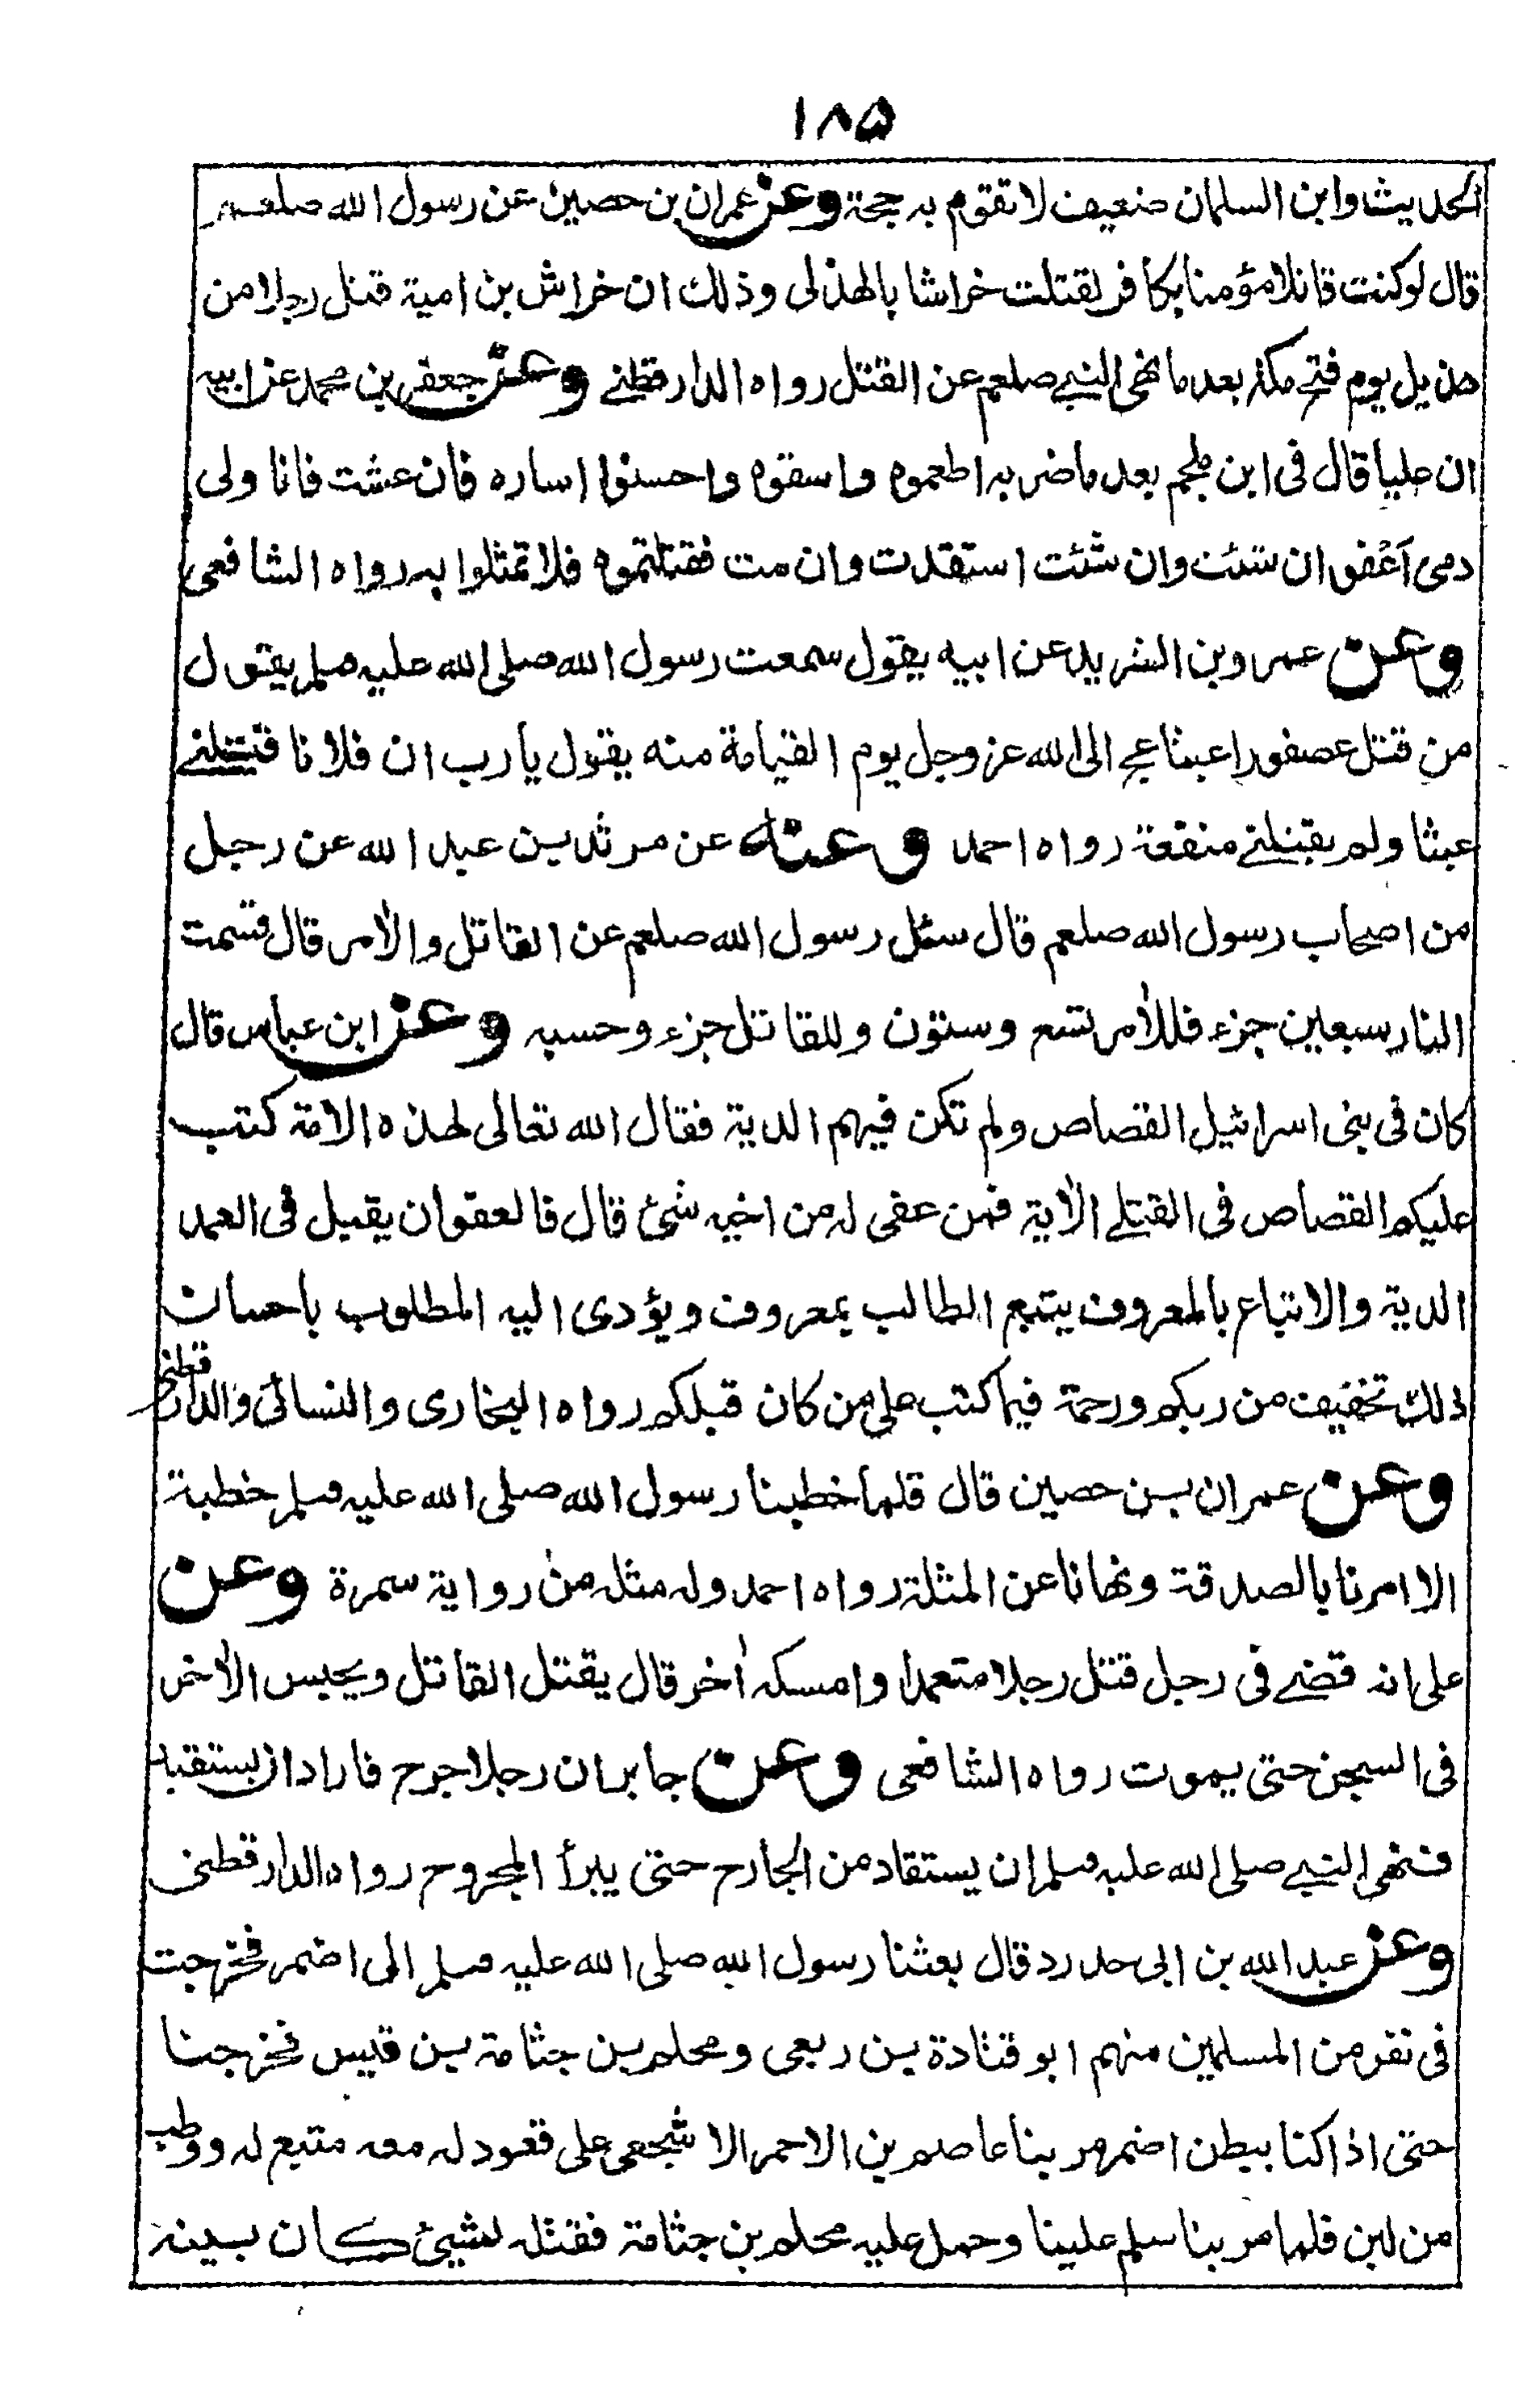 ١٨٥
الحديث وابن السلمان ضعيف لا تقوم به حجة وعن عمران بن حصين عن رسول الله صلعم
قال لو كنت قاتلا مؤمنا بكافر لقتلت خراشا بالهذلى وذلك ان خراش بن امية قتل رجلا من
هذيل يوم فتح مكة بعد ما نهى النبي صلعم عن القتل رواه الدارقطنے وعن جعفر بن محمد عن ابيه
ان عليا قال فى ابن ملجم بعد ما ضربه اطعموه واسقوه واحسنوا اساره فان عشت فانا ولى
دمى آعْفو ان شئت وان شئت استقدت وان مت فقتلتموه فلا تمثلوا به رواه الشافعى
وعن عمرو بن الشريد عن ابيه يقول سمعت رسول الله صلى الله عليه وسلم يقول
من قتل عصفورا عبثا عج الى الله عز وجل يوم القيامة منه يقول يا رب ان فلانا قتلنے
عبثا ولم يقتلنے منفعة رواه احمد وعنه عن مرثد بن عبد الله عن رجل
من اصحاب رسول الله صلعم قال سئل رسول الله صلعم عن القاتل والآمر قال قسمت
النار سبعين جزء فللآمر تسع وستون وللقاتل جزء وحسبه وعن ابن عباس قال
كان فى بنى اسرائيل القصاص ولم تكن فيهم الدية فقال الله تعالى لهذه الامة كتب
عليكم القصاص فى القتلے الآية فمن عفى له من اخيه شئ قال فالعفو ان يقبل فى العمد
الدية والاتباع بالمعروف يتبع الطالب بمعروف ويؤدى اليه المطلوب باحسان
ذلك تخفيف من ربكم ورحمة فيما كتب على من كان قبلكم رواه البخارى والنسائى والدارقطنى
وعن عمران بن حصين قال قلما خطبنا رسول الله صلى الله عليه وسلم خطبة
الا امرنا بالصدقة ونهانا عن المثلة رواه احمد وله مثله من رواية سمرة وعن
على انه قضے فى رجل قتل رجلا متعمدا وامسكه آخر قال يقتل القاتل ويحبس الآخر
فى السجن حتى يموت رواه الشافعى وعن جابر ان رجلا جرح فاراد ان يستقيد
فنهى النبي صلى الله عليه وسلم ان يستقاد من الجارح حتى يبرأ المجروح رواه الدارقطنى
وعن عبد الله بن ابى حدرد قال بعثنا رسول الله صلى الله عليه وسلم الى اضم فخرجت
فى نفر من المسلمين منهم ابو قتادة بن ربعى ومحلم بن جثامة بن قيس فخرجنا
حتى اذا كنا ببطن اضم مر بنا عاصم بن الاحمر الاشجعى على قعود له معه متيع له ووطب
من لبن فلما مر بنا سلم علينا وحمل عليه محلم بن جثامة فقتله لشيئ كان بينه